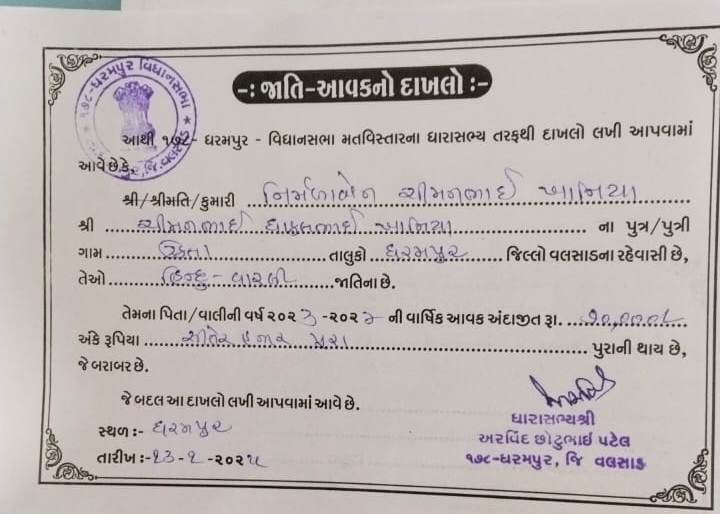 ૧૭૮-ધરમપુર વિધાનસભા
જિ.વલસાડ
-: જાતિ-આવકનો દાખલો :-
આથી ૧૭૮- ધરમપુર - વિધાનસભા મતવિસ્તારના ધારાસભ્ય તરફથી દાખલો લખી આપવામાં
આવે છે કે,
શ્રી/શ્રીમતિ/કુમારી નિર્મળાબેન ચીમનભાઈ
શ્રી ચીમનભાઈ ના પુત્ર/પુત્રી
ગામ તાલુકો ધરમપુર જિલ્લો વલસાડના રહેવાસી છે,
તેઓ હિન્દુ - વારલી જાતિના છે.
તેમના પિતા/વાલીની વર્ષ ૨૦૨૩ -૨૦૨૪ ની વાર્ષિક આવક અંદાજીત રૂા.
અંકે રૂપિયા હજાર પુરા પુરાની થાય છે,
જે બરાબર છે.
જે બદલ આ દાખલો લખી આપવામાં આવે છે.
સ્થળ :- ધરમપુર
તારીખ :-
ધારાસભ્યશ્રી
અરવિંદ છોટુભાઈ પટેલ
૧૭૮-ધરમપુર, જિ વલસાડ